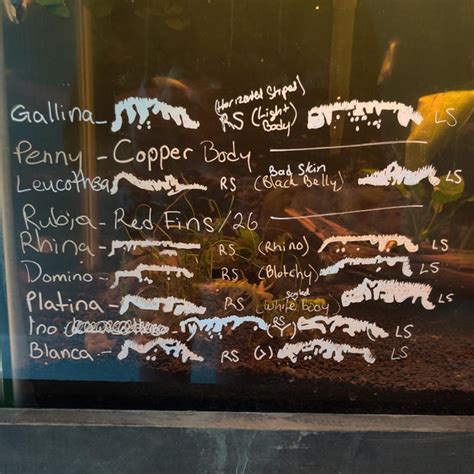 (Horizontal Stripes)
Gallina - RS (Light Body) LS
Penny - Copper Body
Leucothea RS (Bad Skin Black Belly) LS
Rubia - Red Fins/26
Rhina - RS (Rhino) LS
Domino - RS (Blotchy) LS
Platina - RS (White Body) LS
Ino - RS (Y) LS
Blanca - RS LS